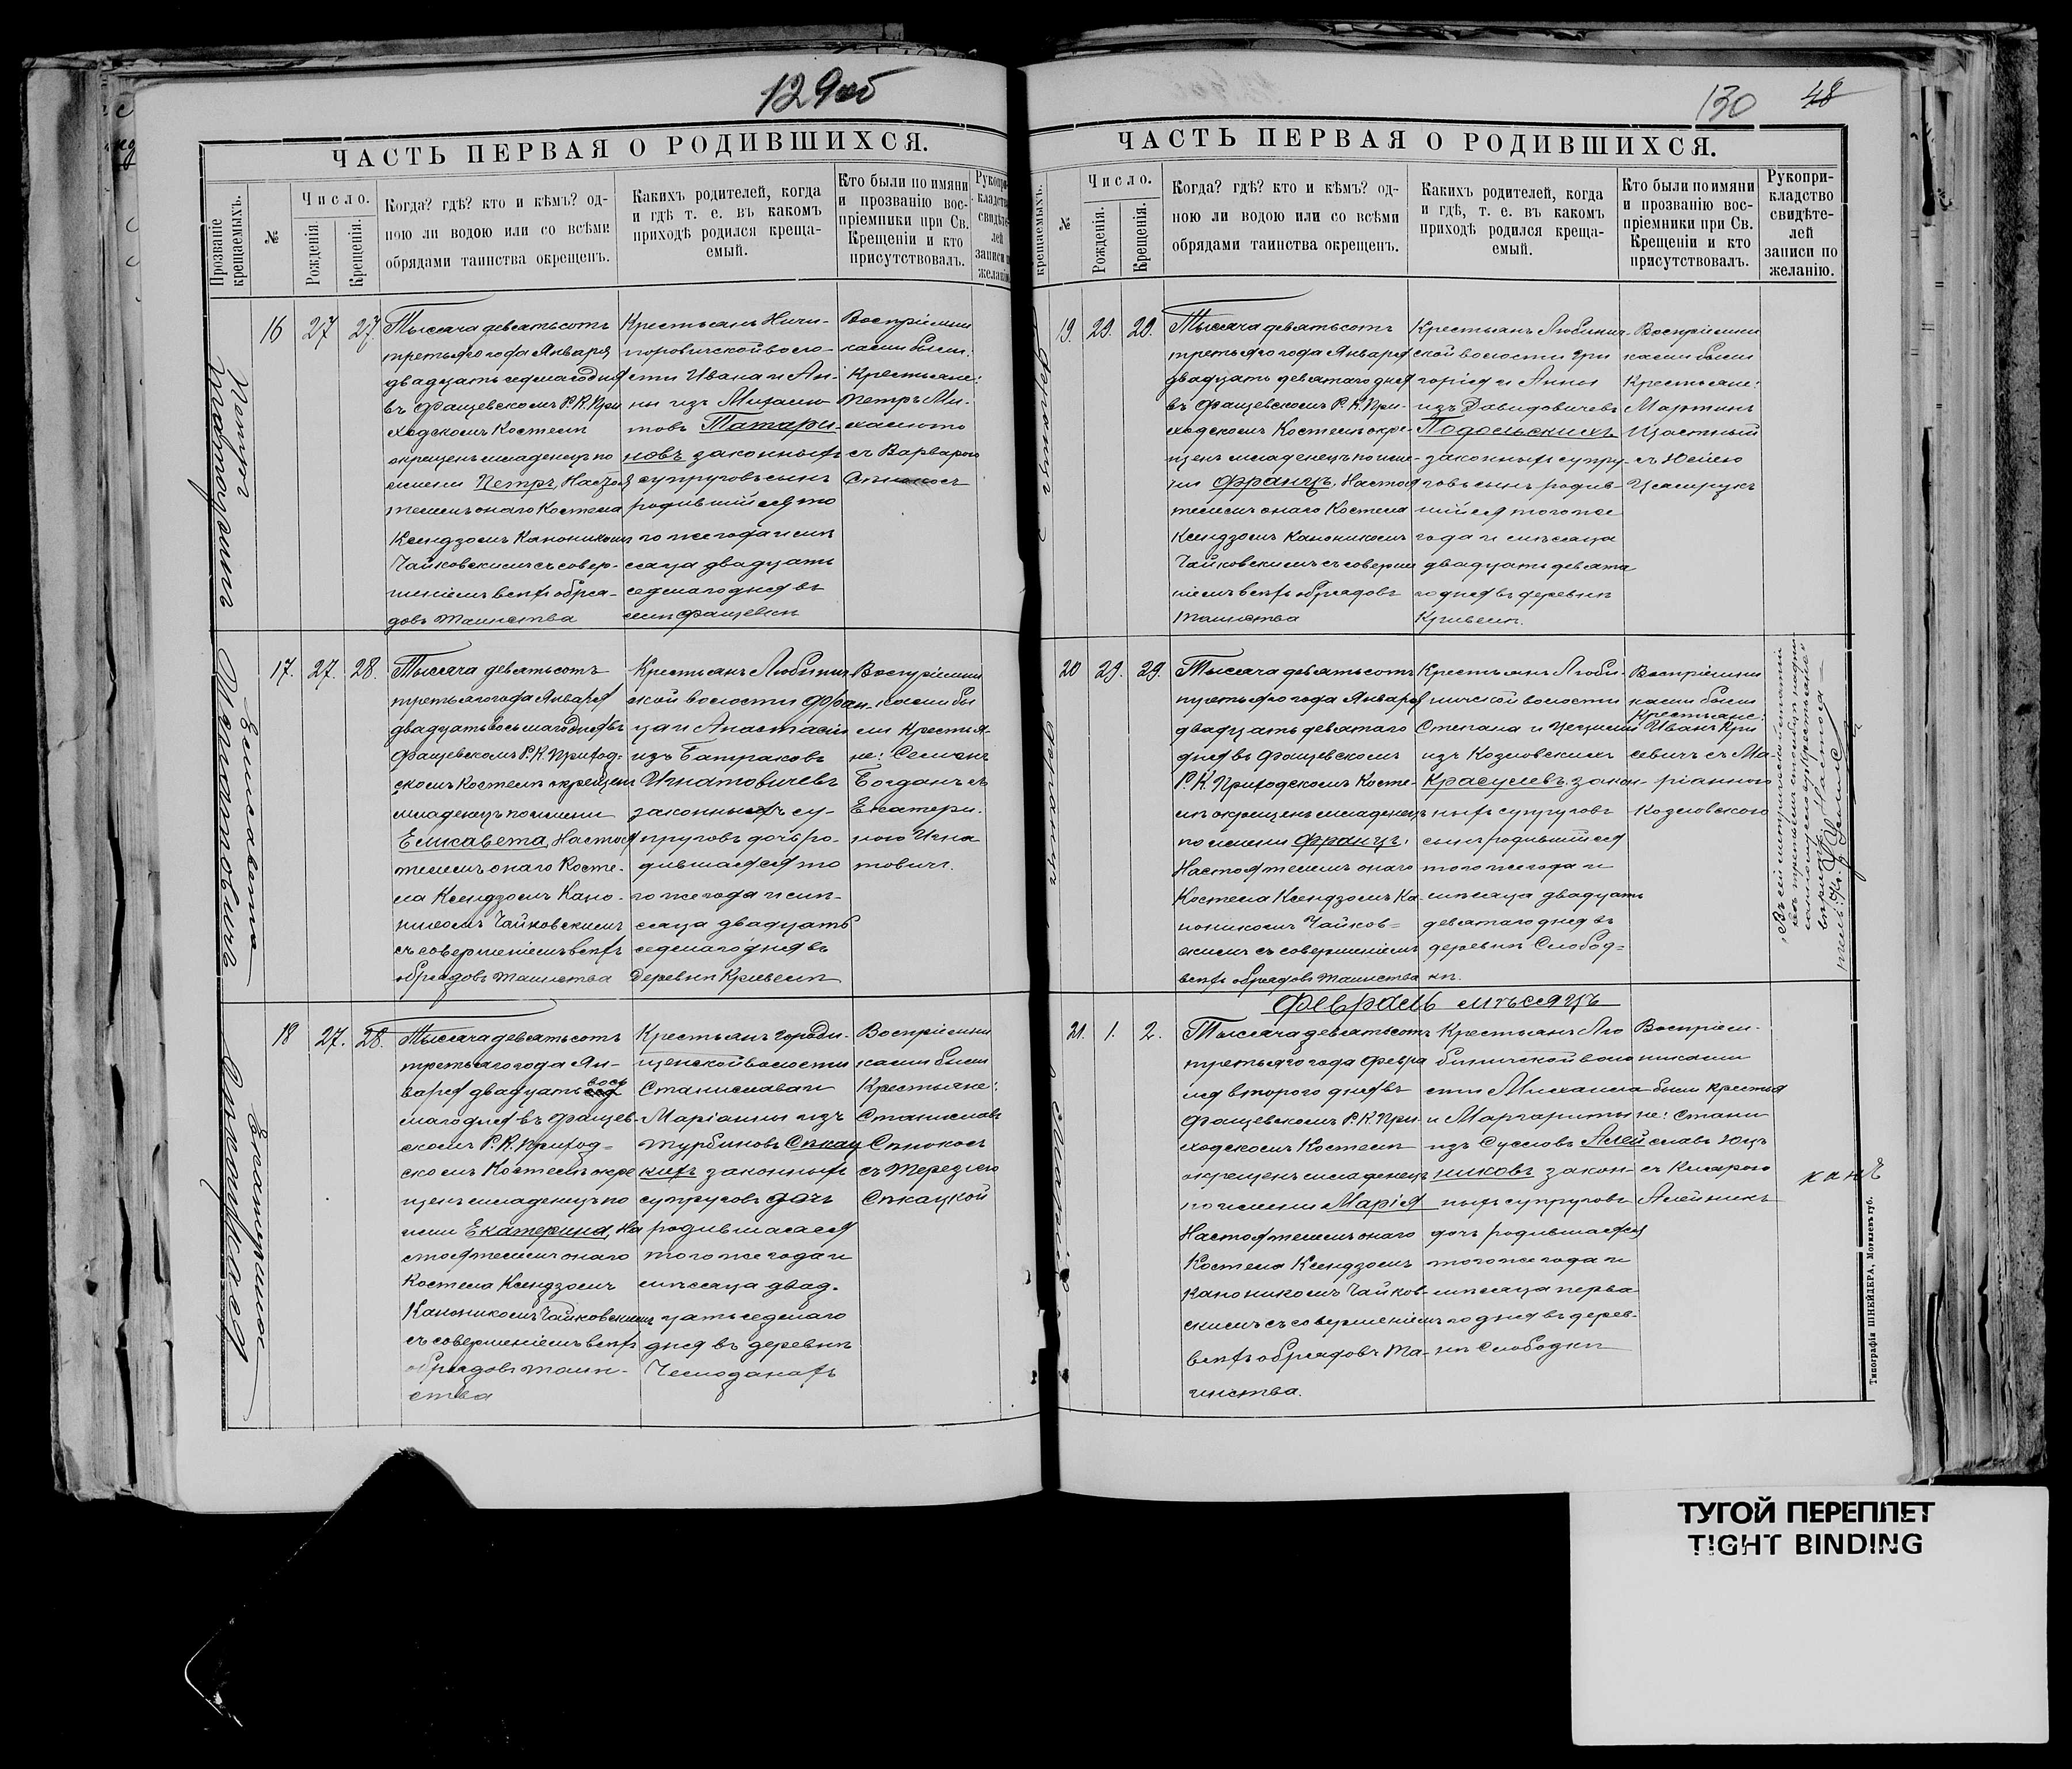 129об
ЧАСТЬ ПЕРВАЯ О РОДИВШИХСЯ.
Прозваніе крещаемыхъ.
№
Число.
Рожденія.
Крещенія.
Когда? гдѣ? кто и кѣмъ? од-
ною ли водою или со всѣми
обрядами таинства окрещенъ.
Какихъ родителей, когда
и гдѣ т. е. въ какомъ
приходѣ родился креща-
емый.
Кто были по имяни
и прозванію вос-
пріемники при Св.
Крещеніи и кто
присутствовалъ.
Рукопри-
кладство
свидѣте-
лей
записи по
желанію
Петръ
Татариновъ
16
27
27.
Тысяча девятьсотъ
третьяго года Января
двадцать седмаго дня
въ Фащевскомъ Р. К. При
ходскомъ Костелѣ
окрещенъ младенецъ по
имени Петръ, Настоя
телемъ онаго Костела
Ксендзомъ Каноникомъ
Чайковскимъ съ совер-
шеніемъ всѣхъ обря-
довъ Таинства
Крестьянъ Ничи-
поровичской воло-
сти Ивана и Ан-
ны изъ
Татари-
новъ законныхъ
супруговъ сынъ
родившійся то
го же года и мѣ
сяца двадцать
седмаго дня въ
селѣ Фащевкѣ
Воспріемни
ками были:
Крестьяне:
Петръ Ми-
съ Варварою
Елисавета
Игнатовичъ
17.
27.
28.
Тысяча девятьсотъ
третьяго года Января
двадцать восьмаго дня въ
Фащевскомъ Р. К. Приход-
скомъ Костелѣ окрещенъ
младенецъ по имени
Елисавета, Настоя
телемъ онаго Косте-
ла Ксендзомъ Кано-
никомъ Чайковскимъ
съ совершеніемъ всѣхъ
обрядовъ Таинства
Крестьянъ Любинич
ской волости Фран-
ца и Анастасіи
изъ Батраковъ
Игнатовичевъ
законныхъ су-
пруговъ дочь ро-
дившаяся то
го же года и мѣ-
сяца двадцать
седмаго дня въ
деревнѣ Кривелѣ
Воспріемни
ками бы
ли Крестья-
не: Семенъ
Богданъ съ
Екатери-
ною Игна
товичъ.
Екатерина
18
27.
28.
Тысяча девятьсотъ
третьяго года Ян-
варя двадцать вось
маго дня въ Фащев-
скомъ Р. К. Приход-
скомъ Костелѣ окре
щенъ младенецъ по
имени Екатерина, На
стоятелемъ онаго
Костела Ксендзомъ
Каноникомъ Чайковскимъ
съ совершеніемъ всѣхъ
обрядовъ таин-
ства
Крестьянъ Городи-
щенской волости
Станислава и
Маріанны изъ
Турбиновъ Сѣкац
кихъ законныхъ
супруговъ дочь
родившаяся
того же года и
мѣсяца двад-
цать седмаго
дня въ деревнѣ
Чемоданахъ
Воспріемни
ками были
Крестьяне:
Станиславъ
съ Терезіею
Сѣкацкой
130
48
ЧАСТЬ ПЕРВАЯ О РОДИВШИХСЯ.
крещаемыхъ.
№
Число.
Рожденія.
Крещенія.
Когда? гдѣ? кто и кѣмъ? од-
ною ли водою или со всѣми
обрядами таинства окрещенъ.
Какихъ родителей, когда
и гдѣ, т. е. въ какомъ
приходѣ родился креща-
емый.
Кто были по имяни
и прозванію вос-
пріемники при Св.
Крещеніи и кто
присутствовалъ.
Рукопри-
кладство
свидѣте-
лей
записи по
желанію.
Францъ
19.
29.
29.
Тысяча девятьсотъ
третьяго года Января
двадцать девятаго дня
въ Фащевскомъ Р. К. При-
ходскомъ Костелѣ окре-
щенъ младенецъ по име-
ни Францъ, Настоя
телемъ онаго Костела
Ксендзомъ Каноникомъ
Чайковскимъ съ соверше
ніемъ всѣхъ обрядовъ
Таинства
Крестьянъ Любинич-
ской волости Гри
горія и Анны
изъ Давидовичевъ
Подольскихъ
законныхъ супру-
говъ сынъ родив-
шійся того же
года и мѣсяца
двадцать девята
го дня въ деревнѣ
Кривелѣ.
Воспріемни
ками были
Крестьяне:
Мартинъ
Щастный
съ
Францъ
20
29.
29.
Тысяча девятьсотъ
третьяго года Января
двадцать девятаго
дня въ Фащевскомъ
Р. К. Приходскомъ Косте-
лѣ окрещенъ младенецъ
по имени Францъ,
Настоятелемъ онаго
Костела Ксендзомъ Ка
ноникомъ Чайков=
скимъ съ совершеніемъ
всѣхъ обрядовъ Таинства
Крестьянъ Люби-
ничской волости
Степана и Цециліи
изъ Козловскихъ
Красулевъ закон-
ныхъ супруговъ
сынъ родившійся
того же года и
мѣсяца двадцать
девятаго дня въ
деревнѣ Слобод=
кѣ.
Воспріемни
ками были
Крестьяне:
Иванъ Кри
севичъ съ Ма-
ріанною
Козловскою
Февраль мѣсяцъ
21.
1.
2.
Тысяча девятьсотъ
третьяго года Февра
ля второго дня въ
Фащевскомъ Р. К. При-
ходскомъ Костелѣ
окрещенъ младенецъ
по имени Марія
Настоятелемъ онаго
Костела Ксендзомъ
Каноникомъ Чайков-
скимъ съ совершеніемъ
всѣхъ обрядовъ Та-
инства.
Крестьянъ Лю
биничской воло
сти Михаила
и Маргариты
изъ Сусловъ Алей
никовъ закон-
ныхъ супруговъ
дочь родившаяся
того же года и
мѣсяца перва
го дня въ дерев-
нѣ Слободкѣ
Воспріем-
никами
были Крестья
не: Стани
славъ Юцъ
съ Кларою
Алейникъ
Типографія ШНЕЙДЕРА, Могилевъ губ.
ТУГОЙ ПЕРЕПЛЕТ
TIGHT BINDING